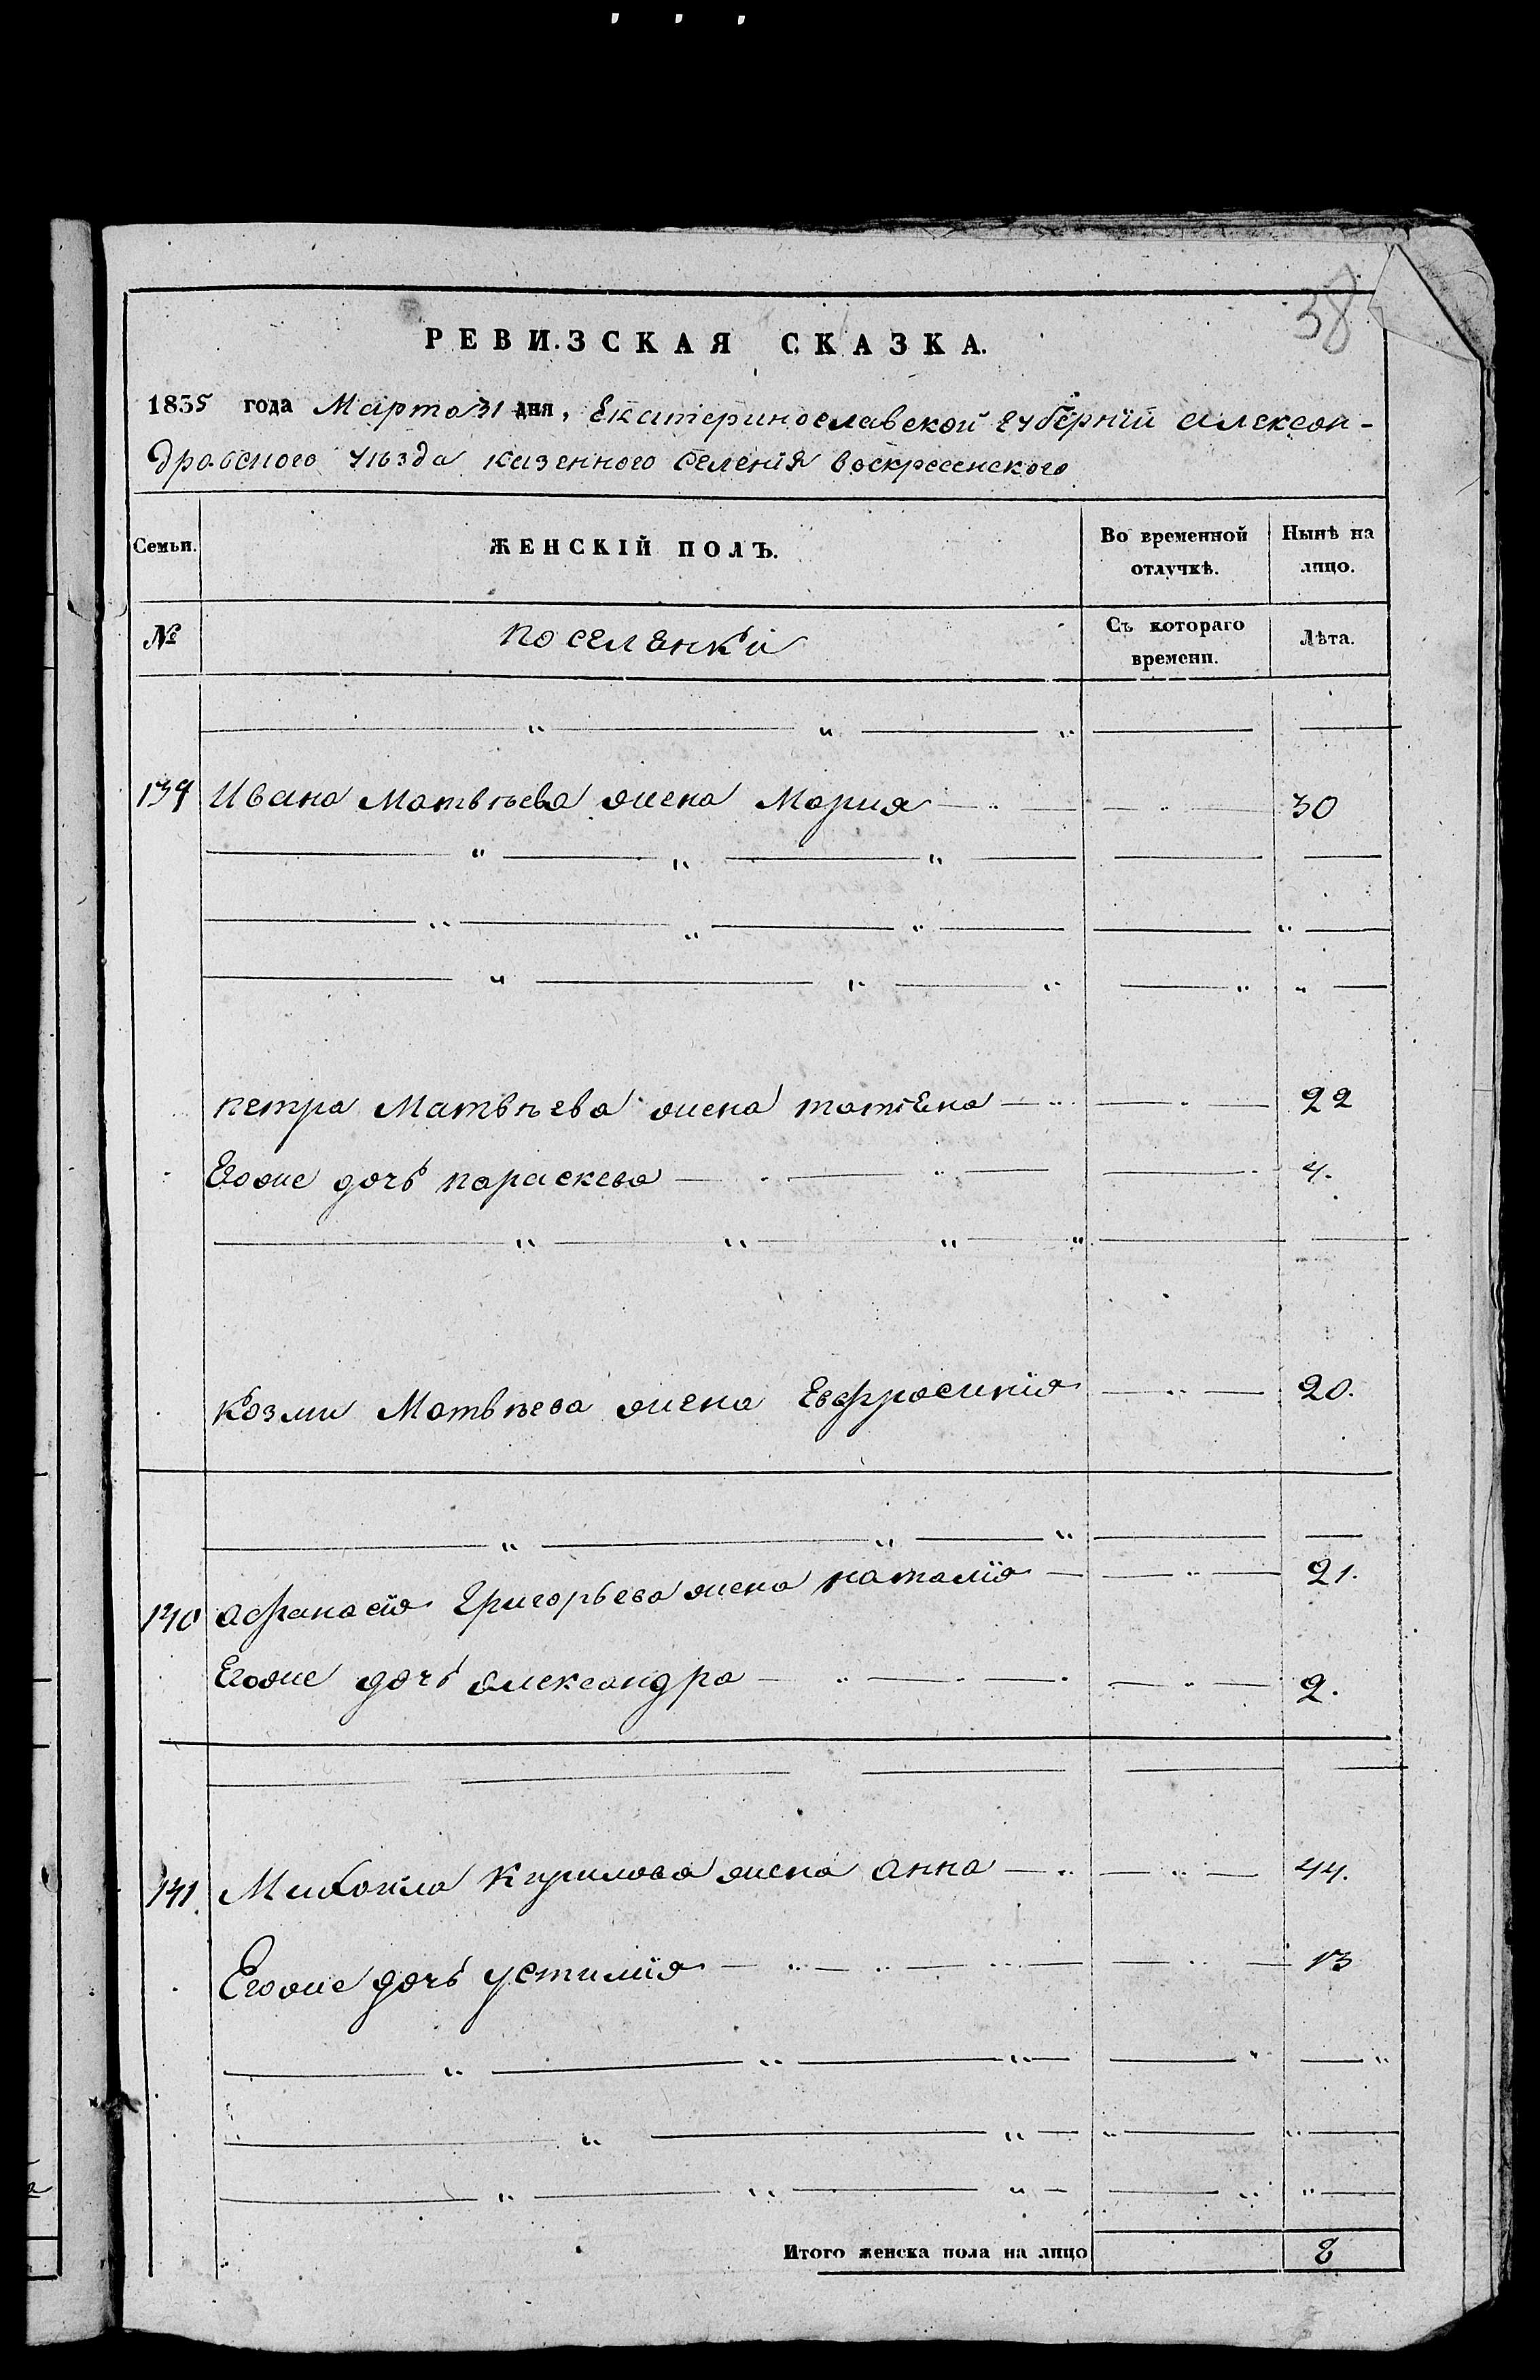 38
РЕВИЗСКАЯ СКАЗКА.
1835 года Марта 31 дня, Екатеринославской губерніи Алексан-
дровского уѣзда казенного селенія воскресенского
Семьи. ЖЕНСКІЙ ПОЛЪ. Во временной отлучкѣ. Нынѣ на лицо.
№ поселенки Съ котораго времени. Лѣта.
139 Ивана Матвѣева жена Мария 30
петра Матвѣева жена татіена 22
Егоже дочь параскева 4.
Козми Матвѣева жена Евфросинія 20.
140 афанасія Григорьева жена наталія 21.
Егоже дочь александра 2.
141 Михайла Кирилова жена анна 44.
Егоже дочь устинія 13
Итого женска пола на лицо 8